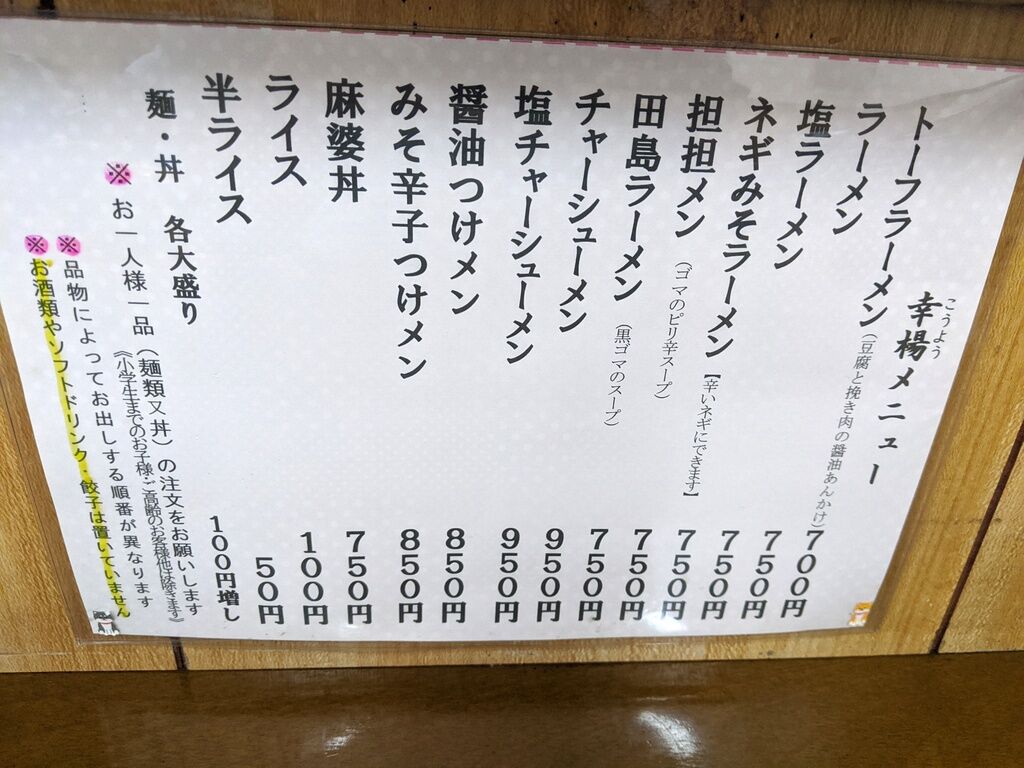 幸楊メニュー
こうよう
トーフラーメン（豆腐と挽き肉の醤油あんかけ） 700円
ラーメン 750円
塩ラーメン 750円
ネギみそラーメン【辛いネギにできます】 750円
担担メン（ゴマのピリ辛スープ） 750円
田島ラーメン（黒ゴマのスープ） 750円
チャーシューメン 950円
塩チャーシューメン 950円
醤油つけメン 850円
みそ辛子つけメン 850円
麻婆丼 750円
ライス 100円
半ライス 50円
麺・丼 各大盛り 100円増し
※お一人様一品（麺類又丼）の注文をお願いします
《小学生までのお子様・ご高齢のお客様他は除きます》
※品物によってお出しする順番が異なります
※お酒類やソフトドリンク・餃子は置いていません